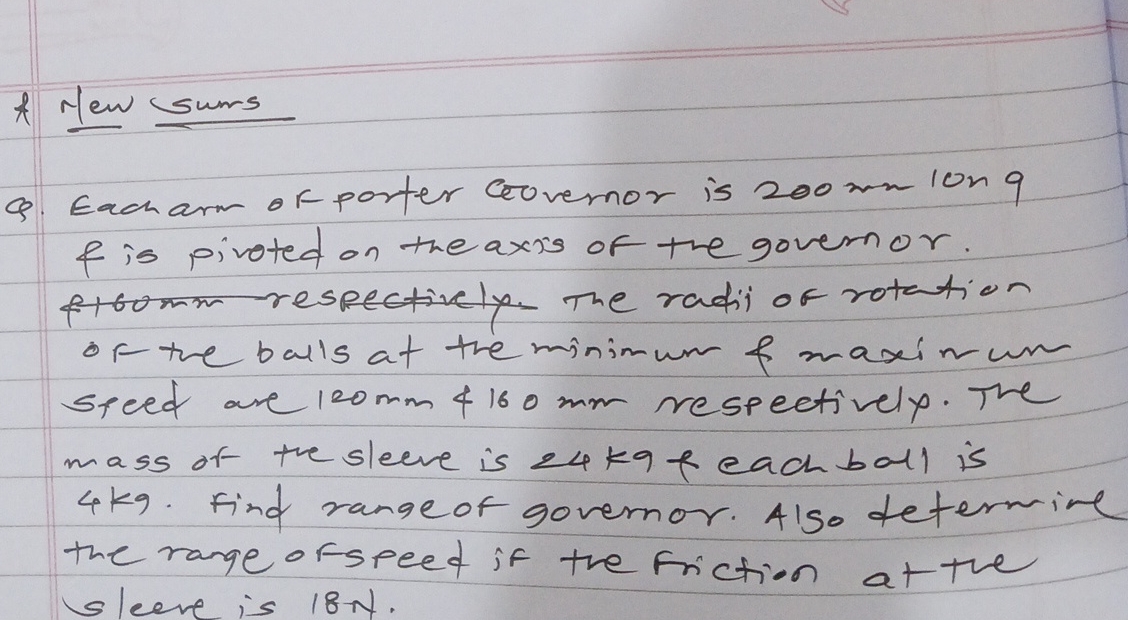 * New Sums
Q. Each arm of porter Governor is 200 mm long
& is pivoted on the axis of the governor.
&160mm respectively. The radii of rotation
of the balls at the minimum & maximum
speed are 120mm & 160 mm respectively. The
mass of the sleeve is 24kg & each ball is
4kg. Find range of governor. Also determine
the range of speed if the friction at the
sleeve is 18N.